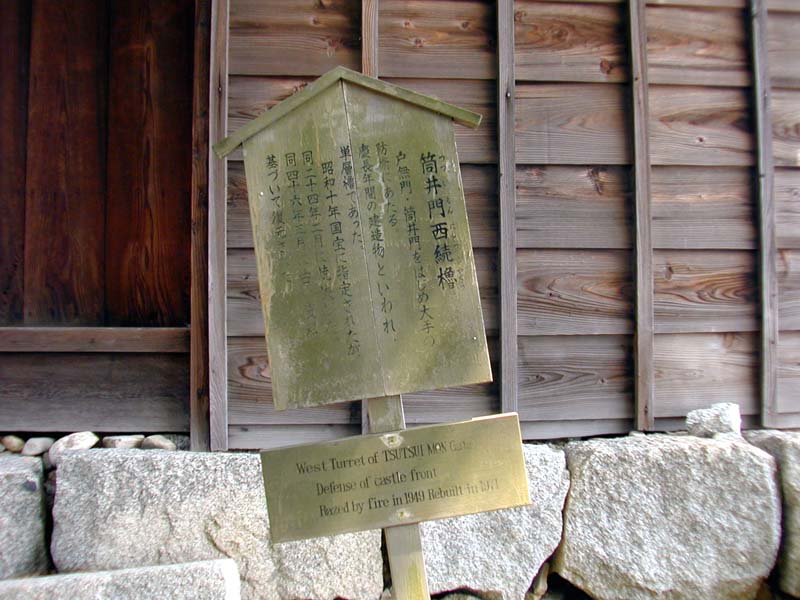 筒井門西続櫓
戸無門、筒井門をはじめ大手の
防衛にあたる
慶長年間の建造物といわれ、
単層櫓であった。
昭和十年国宝に指定されたが
同二十四年二月に
同四十六年三月
基づいて復元
West Turret of TSUTSUI MON Gate
Defense of castle front
Razed by fire in 1949 Rebuilt in 1971